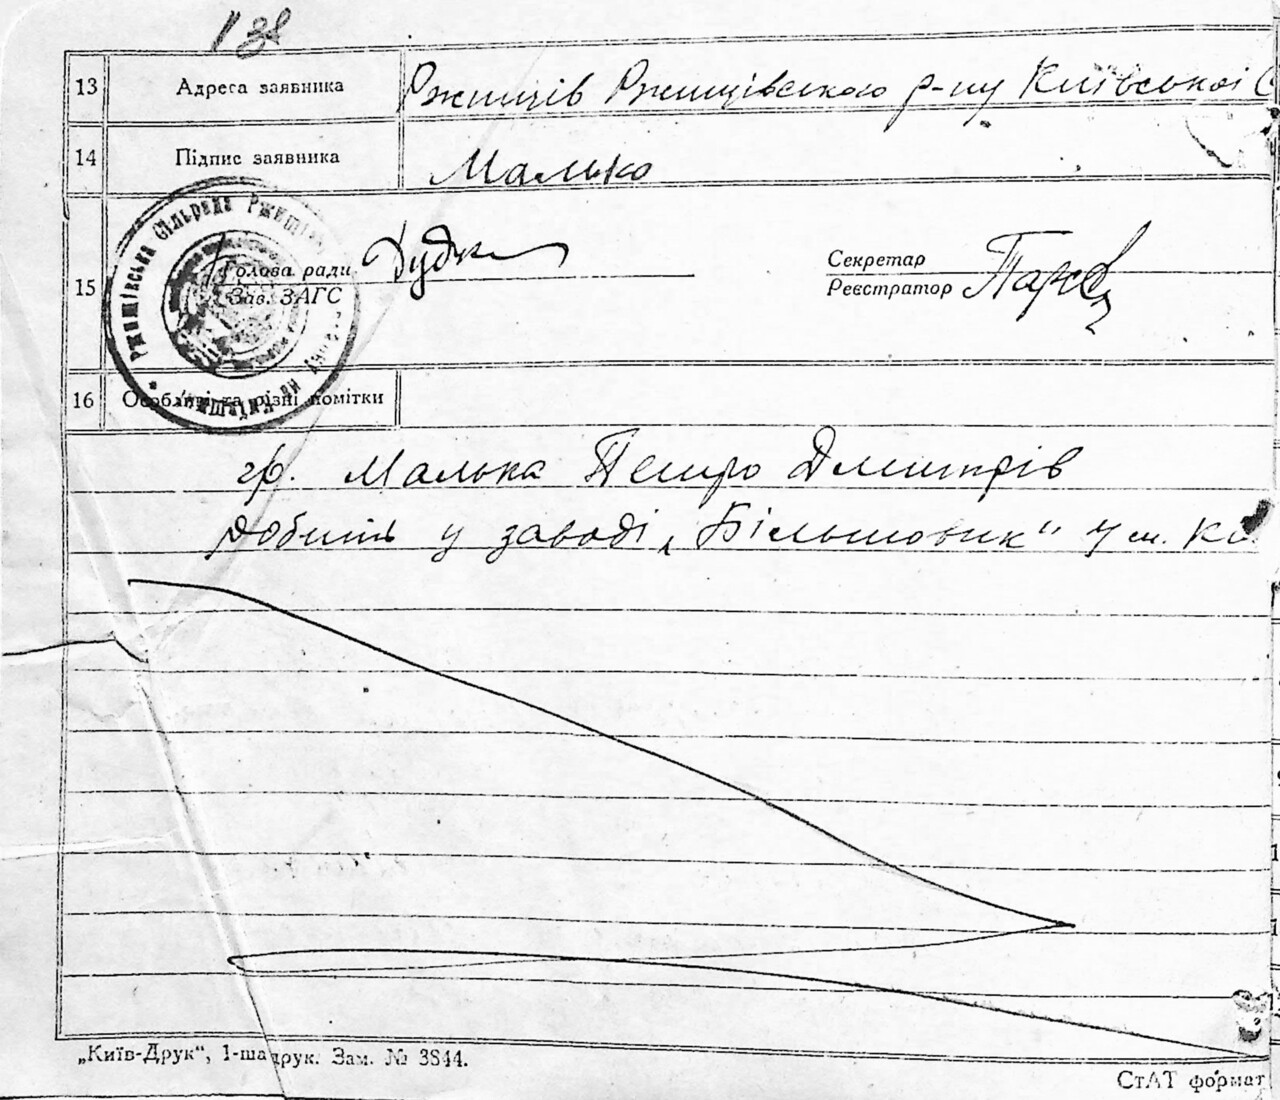 138
13 Адреса заявника Ржищів Ржищівського р-ну Київської
14 Підпис заявника Малько
Ржищівська Сільрада Ржищів
15 Голова ради Дудка Секретар
Зав. ЗАГС Реєстратор
16 Особливі та різні помітки
гр. Малька Петро Дмитрів
робить у заводі „Більшовик“ у м.
„Київ-Друк“, 1-ша друк. Зам. № 3844.
СтАТ формат